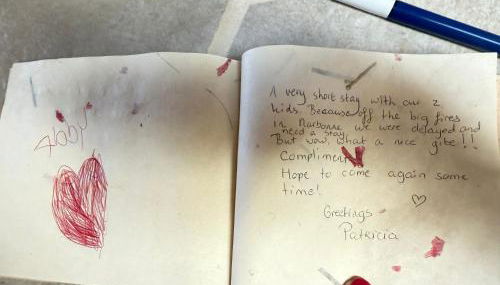 A very short stay with our 2
kids. Because off the big fires
in Narbonne we were delayed and
need a stay.
But wow, what a nice gite!!
Compliment
Hope to come again some
time!
Greetings
Patricia